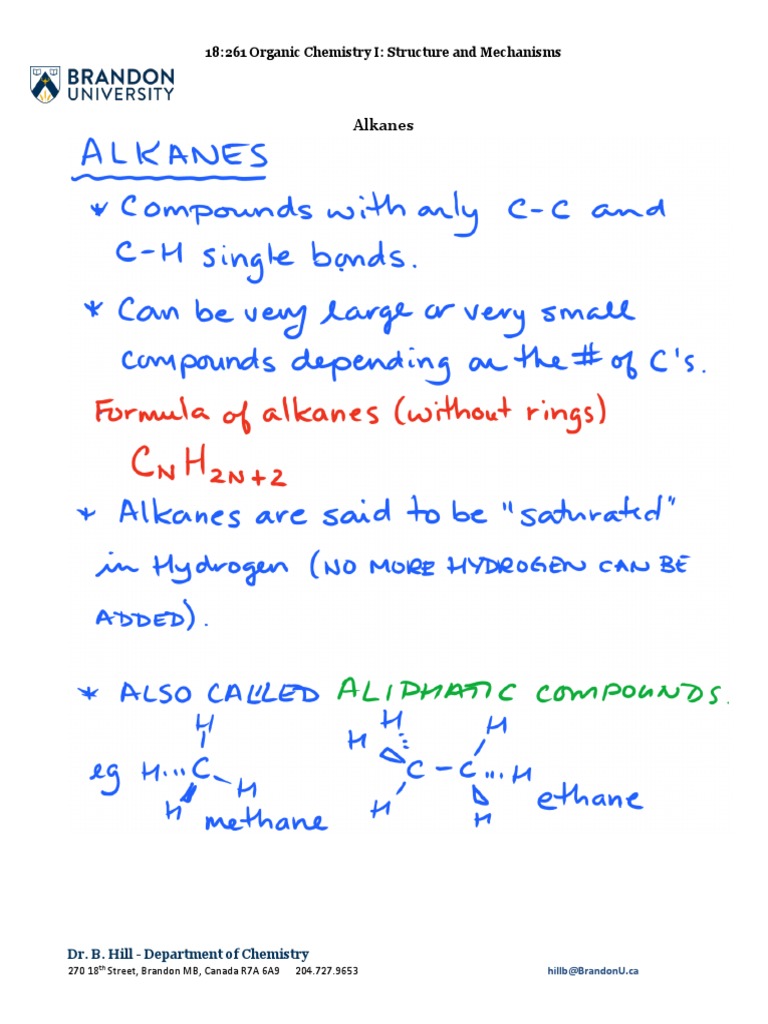 18:261 Organic Chemistry I: Structure and Mechanisms
BRANDON
UNIVERSITY
Alkanes
ALKANES
* Compounds with only C-C and
C-H single bonds.
* Can be very large or very small
compounds depending on the # of C's.
Formula of alkanes (without rings)
CNH2N+2
* Alkanes are said to be "saturated"
in Hydrogen (NO MORE HYDROGEN CAN BE
ADDED).
* ALSO CALLED ALIPHATIC COMPOUNDS.
H H H
H
eg H C H C - C H
H H H
methane ethane
Dr. B. Hill - Department of Chemistry
270 18th Street, Brandon MB, Canada R7A 6A9 204.727.9653 hillb@BrandonU.ca